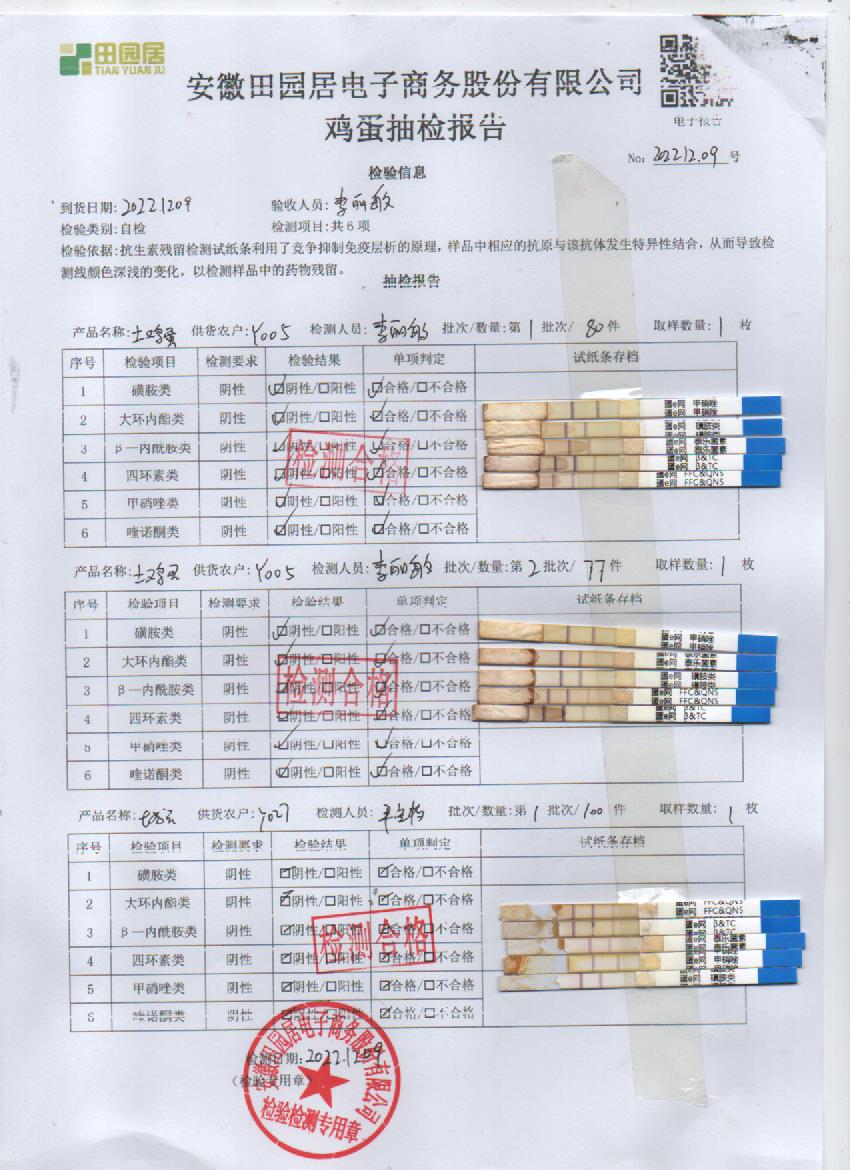 田园居
TIAN YUAN JU
安徽田园居电子商务股份有限公司
鸡蛋抽检报告
电子报告
No: 20221209 号
检验信息
到货日期: 20221209 验收人员: 李丽敏
检验类别: 自检 检测项目: 共6项
检验依据: 抗生素残留检测试纸条利用了竞争抑制免疫层析的原理, 样品中相应的抗原与该抗体发生特异性结合, 从而导致检
测线颜色深浅的变化, 以检测样品中的药物残留。
抽检报告
产品名称: 土鸡蛋 供货农户: Y005 检测人员: 李丽敏 批次/数量: 第1批次/ 80件 取样数量: 1 枚
序号 检验项目 检测要求 检验结果 单项判定 试纸条存档
1 磺胺类 阴性 ☑阴性/☐阳性 ☑合格/☐不合格
2 大环内酯类 阴性 ☑阴性/☐阳性 ☑合格/☐不合格
3 β一内酰胺类 阴性 ☑阴性/☐阳性 ☑合格/☐不合格
4 四环素类 阴性 ☑阴性/☐阳性 ☑合格/☐不合格
5 甲硝唑类 阴性 ☑阴性/☐阳性 ☑合格/☐不合格
6 喹诺酮类 阴性 ☑阴性/☐阳性 ☑合格/☐不合格
检测合格
蛋e网 甲硝唑
蛋e网 甲硝唑
蛋e网 磺胺类
蛋e网 磺胺类
蛋e网 泰乐菌素
蛋e网 泰乐菌素
蛋e网 β&TC
蛋e网 β&TC
蛋e网 FFC&QNS
蛋e网 FFC&QNS
产品名称: 土鸡蛋 供货农户: Y005 检测人员: 李丽敏 批次/数量: 第2批次/ 77件 取样数量: 1 枚
序号 检验项目 检测要求 检验结果 单项判定 试纸条存档
1 磺胺类 阴性 ☑阴性/☐阳性 ☑合格/☐不合格
2 大环内酯类 阴性 ☑阴性/☐阳性 ☑合格/☐不合格
3 β一内酰胺类 阴性 ☑阴性/☐阳性 ☑合格/☐不合格
4 四环素类 阴性 ☑阴性/☐阳性 ☑合格/☐不合格
5 甲硝唑类 阴性 ☑阴性/☐阳性 ☑合格/☐不合格
6 喹诺酮类 阴性 ☑阴性/☐阳性 ☑合格/☐不合格
检测合格
蛋e网 甲硝唑
蛋e网 甲硝唑
蛋e网 泰乐菌素
蛋e网 泰乐菌素
蛋e网 磺胺类
蛋e网 磺胺类
蛋e网 FFC&QNS
蛋e网 FFC&QNS
蛋e网 β&TC
蛋e网 β&TC
产品名称: 供货农户: Y027 检测人员: 批次/数量: 第1批次/100 件 取样数量: 1 枚
序号 检验项目 检测要求 检验结果 单项判定 试纸条存档
1 磺胺类 阴性 ☑阴性/☐阳性 ☑合格/☐不合格
2 大环内酯类 阴性 ☑阴性/☐阳性 ☑合格/☐不合格
3 β一内酰胺类 阴性 ☑阴性/☐阳性 ☑合格/☐不合格
4 四环素类 阴性 ☑阴性/☐阳性 ☑合格/☐不合格
5 甲硝唑类 阴性 ☑阴性/☐阳性 ☑合格/☐不合格
6 喹诺酮类 阴性 ☑阴性/☐阳性 ☑合格/☐不合格
检测合格
蛋e网 FFC&QNS
蛋e网 FFC&QNS
蛋e网 β&TC
蛋e网 β&TC
蛋e网 泰乐菌素
蛋e网 泰乐菌素
蛋e网 甲硝唑
蛋e网 甲硝唑
蛋e网 磺胺类
蛋e网 磺胺类
检测日期: 20221209
(检验专用章)
安徽田园居电子商务股份有限公司
检验检测专用章